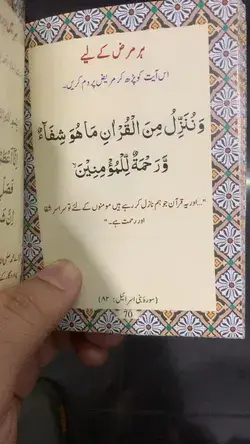 ہر مرض کے لیے
اس آیت کو پڑھ کر مریض پر دم کریں۔
وَنُنَزِّلُ مِنَ الْقُرْاٰنِ مَا هُوَ شِفَآءٌ
وَّرَحْمَةٌ لِّلْمُؤْمِنِيْنَ
"...اور یہ قرآن جو ہم نازل کر رہے ہیں مومنوں کے لئے تو سراسر شفا
اور رحمت ہے۔"
(سورۃ بنی اسرائیل: ۸۲)
70